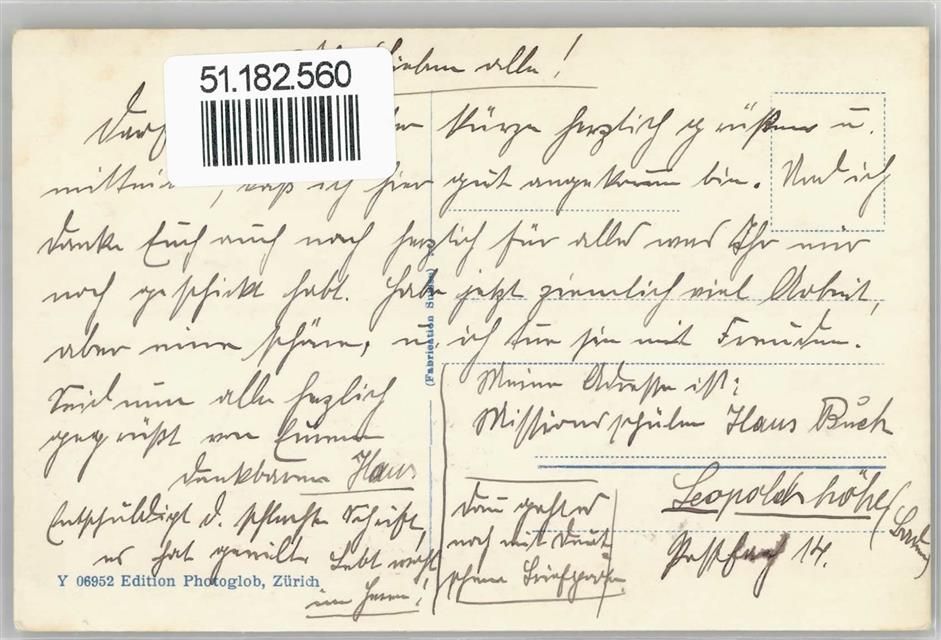 51.182.560
lieben alle!
Darf in Kürze herzlich grüßen u.
mitteilen, daß ich hier gut angekommen bin. Und ich
danke Euch auch noch herzlich für alles was Ihr mir
noch geschickt habt. Habe jetzt ziemlich viel Arbeit,
aber eine schöne, u. ich tue sie mit Freuden.
Seid nun alle herzlich
gegrüßt von Eurem
dankbaren Hans
Entschuldigt d. schlechte Schrift,
es hat geeilt. Lebt wohl
im Herrn!
Meine Adresse ist:
Missionsschüler Hans Buck
Leopoldshöhe (Baden)
Postfach 14.
Dann geht es
noch mit deut-
schem Briefporto.
(Fabrication Suisse)
Y 06952 Edition Photoglob, Zürich